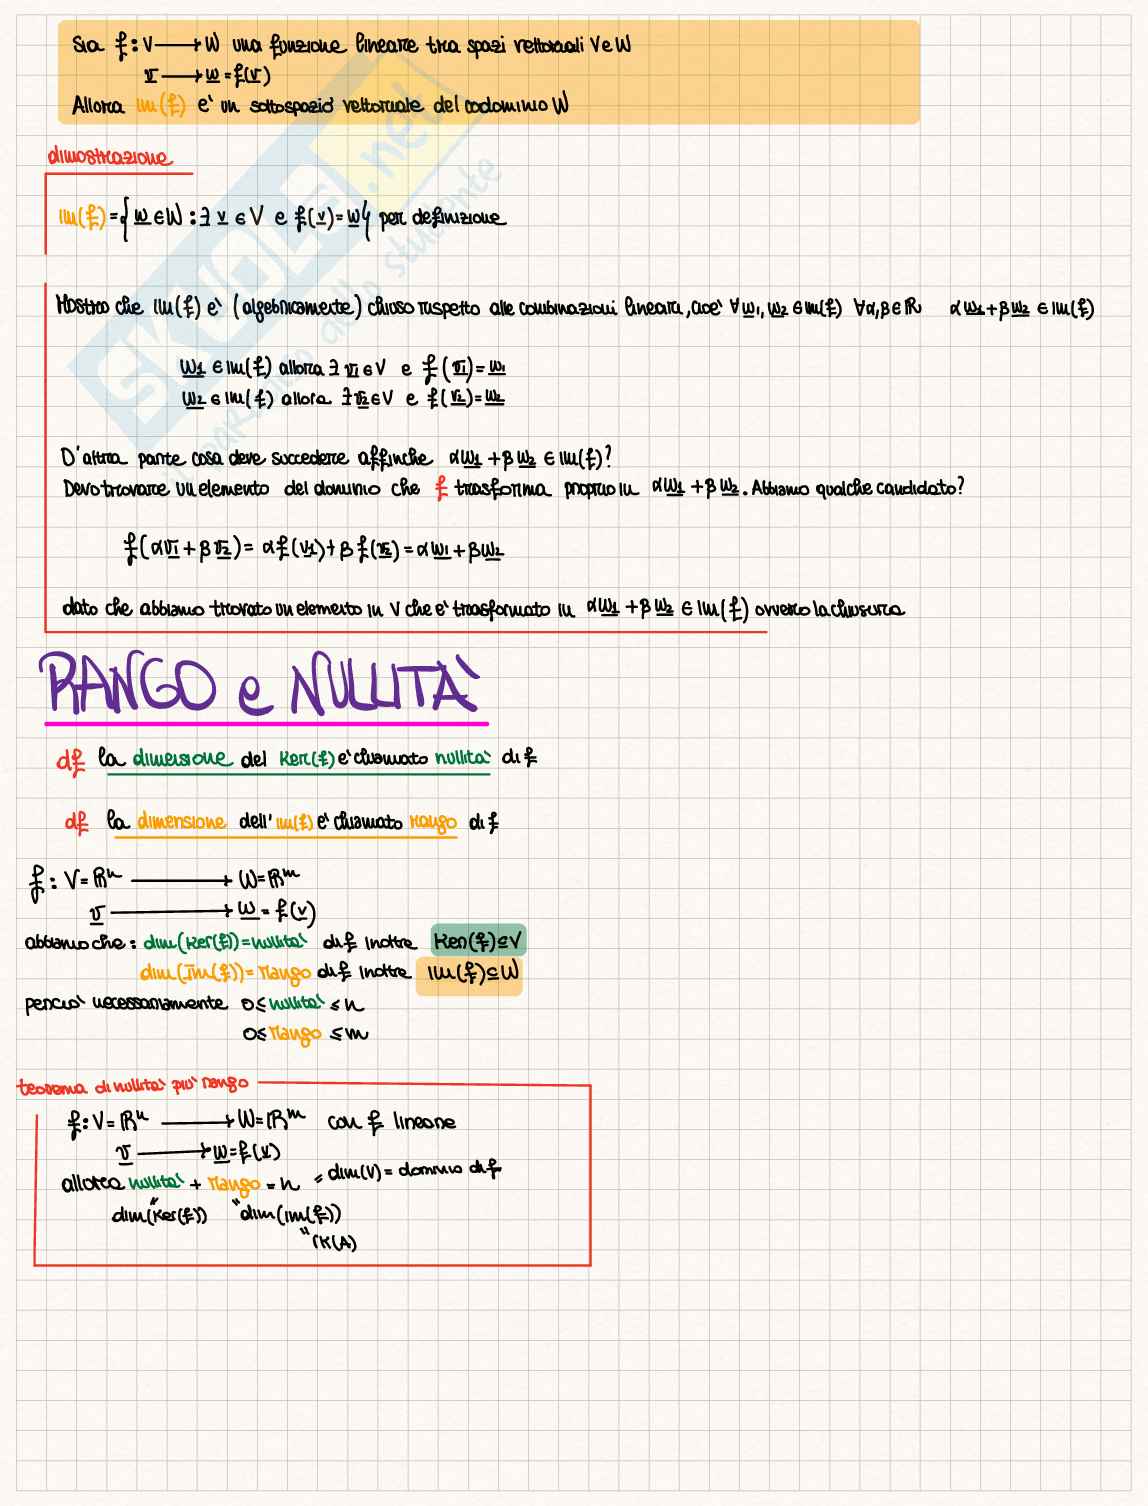 Sia f: V ⟶ W una funzione lineare tra spazi vettoriali V e W
v ⟶ w = f(v)
Allora Im(f) e' un sottospazio vettoriale del codominio W
dimostrazione
Im(f) = { w ∈ W : ∃ v ∈ V e f(v) = w } per definizione
Mostro che Im(f) e' (algebricamente) chiuso rispetto alle combinazioni lineari, cioe' ∀ w1, w2 ∈ Im(f) ∀α,β ∈ R αw1 + βw2 ∈ Im(f)
w1 ∈ Im(f) allora ∃ v1 ∈ V e f(v1) = w1
w2 ∈ Im(f) allora ∃ v2 ∈ V e f(v2) = w2
D'altra parte cosa deve succedere affinche αw1 + βw2 ∈ Im(f)?
Devo trovare un elemento del dominio che f trasforma proprio in αw1 + βw2. Abbiamo qualche candidato?
f(αv1 + βv2) = αf(v1) + βf(v2) = αw1 + βw2
dato che abbiamo trovato un elemento in V che e' trasformato in αw1 + βw2 ∈ Im(f) ovvero la chiusura
RANGO e NULLITA'
df la dimensione del Ker(f) e' chiamato nullita' di f
df la dimensione dell' Im(f) e' chiamato rango di f
f: V = R^n ⟶ W = R^m
v ⟶ w = f(v)
abbiamo che: dim(Ker(f)) = nullita' di f inoltre Ker(f) ⊆ V
dim(Im(f)) = rango di f inoltre Im(f) ⊆ W
percio' necessariamente 0 ≤ nullita' ≤ n
0 ≤ rango ≤ m
teorema di nullita' piu' rango
f: V = R^n ⟶ W = R^m con f lineare
v ⟶ w = f(v)
allora nullita' + rango = n = dim(V) = dominio di f
" dim(Ker(f)) " dim(Im(f))
" rk(A)
SKUOLA.net